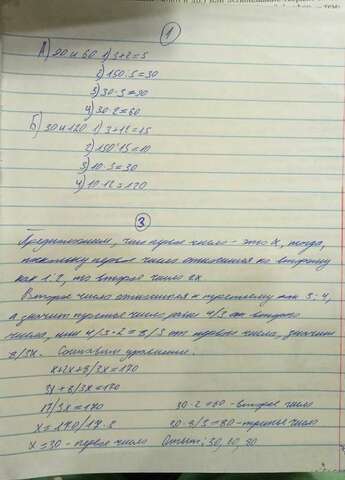 1
А) 90 и 60 1) 3+2=5
2) 150:5=30
3) 30·3=90
4) 30·2=60
Б) 30 и 120 1) 3+12=15
2) 150:15=10
3) 10·3=30
4) 10·12=120
3
Предположим, что первое число - это х, тогда,
поскольку первое число относится ко второму
как 1:2, то второе число 2х.
Второе число относится к третьему как 3:4,
а значит третье число равно 4/3 от второго
числа, или 4/3·2=8/3 от первого числа, значит
8/3х. Составим уравнение:
х+2х+8/3х=170
3х+8/3х=170
17/3х=170 30·2=60 - второе число
х=170/17·3 30·8/3=80 - третье число
х=30 - первое число Ответ: 30, 60, 80